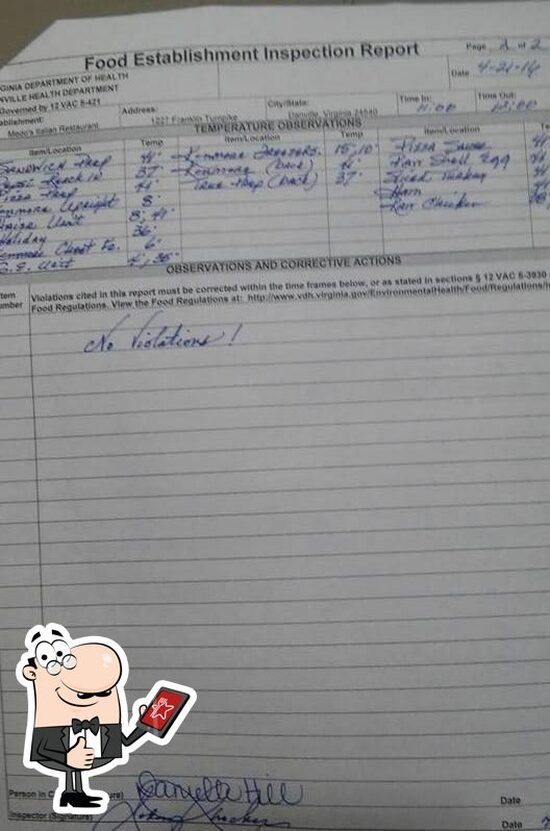 Food Establishment Inspection Report
Page 2 of 2
GINIA DEPARTMENT OF HEALTH
NVILLE HEALTH DEPARTMENT
Governed by 12 VAC 5-421
Date 4-21-16
ablishment:
Address:
City/State:
Time In:
Time Out:
Italian Restaurant
1227 Franklin Turnpike
Danville, Virginia 24540
11:00
12:00
TEMPERATURE OBSERVATIONS
Item/Location Temp Item/Location Temp Item/Location
Sandwich Prep 41° Kenmore Freezers 15, 10° Pizza Sauce 41
Reach in 37° Kenmore (Back) Raw Shell Egg
Pizza Prep 41° True Prep (Back) 37° Sliced Turkey
Upright 8° Ham
Unit 8, 41° Raw Chicken
Holiday 36°
Chest 6°
G.E. Unit
OBSERVATIONS AND CORRECTIVE ACTIONS
Item Number
Violations cited in this report must be corrected within the time frames below, or as stated in sections § 12 VAC 5-3930
Food Regulations. View the Food Regulations at: http://www.vdh.virginia.gov/EnvironmentalHealth/Food/Regulations/in
No Violations!
Person in C ure) Daniella Hill Date
Inspector (Signature) Date